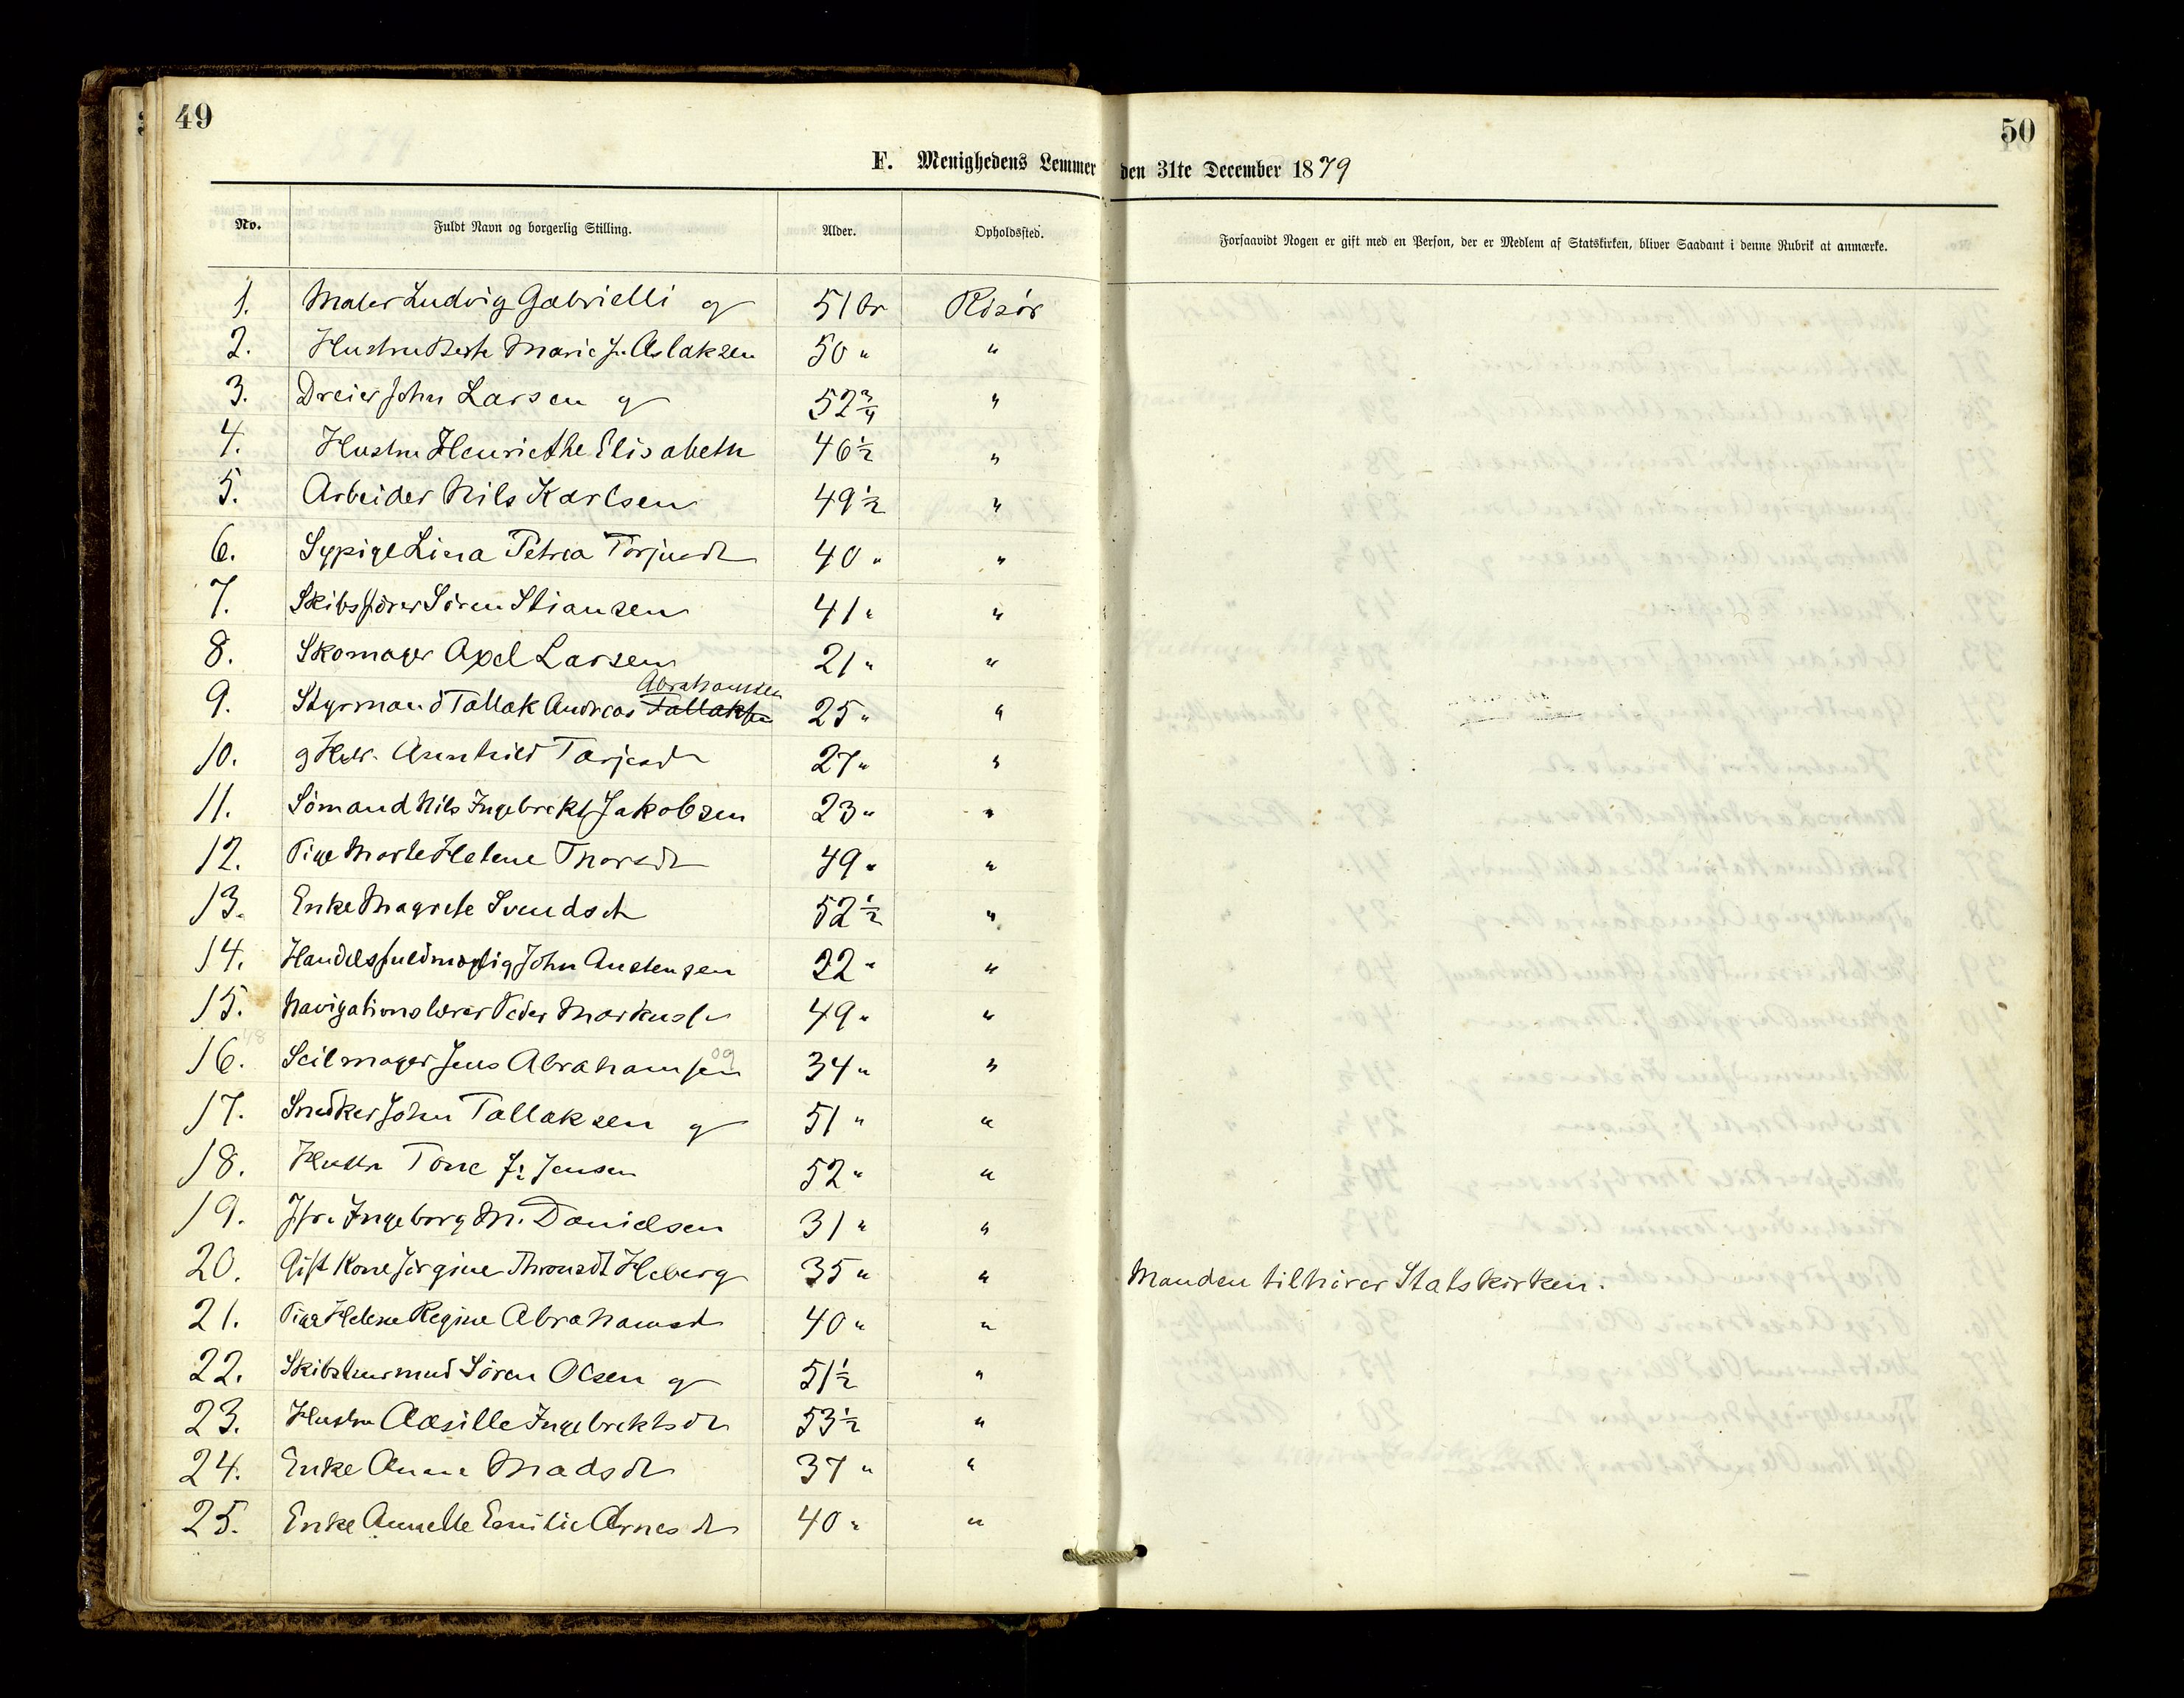 49
50
F. Menighedens Lemmer den 31te December 1879
No. Fuldt Navn og borgerlig Stilling. Alder. Opholdssted. Forsaavidt Nogen er gift med en Person, der er Medlem af Statskirken, bliver Saadant i denne Rubrik at anmærke.
1. Maler Ludvig Gabrielli og 51 Risör
2. Hustru Marie f. Aslaksen 50 "
3. Dreier John Larsen og 52 3/4 "
4. Hustru Henriethe Elisabeth 46 1/2 "
5. Arbeider Nils Karlsen 49 1/2 "
6. Sypige Lina Petrea Torjusdt 40 " "
7. Skibsförer Sören Stiansen 41 " "
8. Skomager Axel Larsen 21 " "
Abrahamsen
9. Styrmand Tallak Andreas Tallaksen 25 " "
10. og Hstr. Aunhild Torjusdt 27 " "
11. Sömand Nils Ingebrekt Jakobsen 23 " "
12. Pige Marte Helene Thorsdt 49 " "
13. Enke Magrete Svendsdt 52 1/2 "
14. Handelsfuldmægtig John Austensen 22 " "
15. Navigationslærer Peder Markussen 49 " "
48
og
16. Seilmager Jens Abrahamsen 34 " "
17. Snedker John Tallaksen og 51 " "
18. Hustru Tone f. Jensen 52 " "
19. Jfr. Ingeborg M. Danielsen 31 " "
20. Gift Kone Jörgine Heberg 35 " " Manden tilhörer Statskirken.
21. Pige Helene Regine Abrahamsdt 40 " "
22. Skibstömmermd Sören Olsen og 51 1/2 "
23. Hustru Adsille Ingebrektsdt 53 1/2 "
24. Enke Anna Madsdt 37 " "
25. Enke Annette Emilie Arnesdt 40 " "